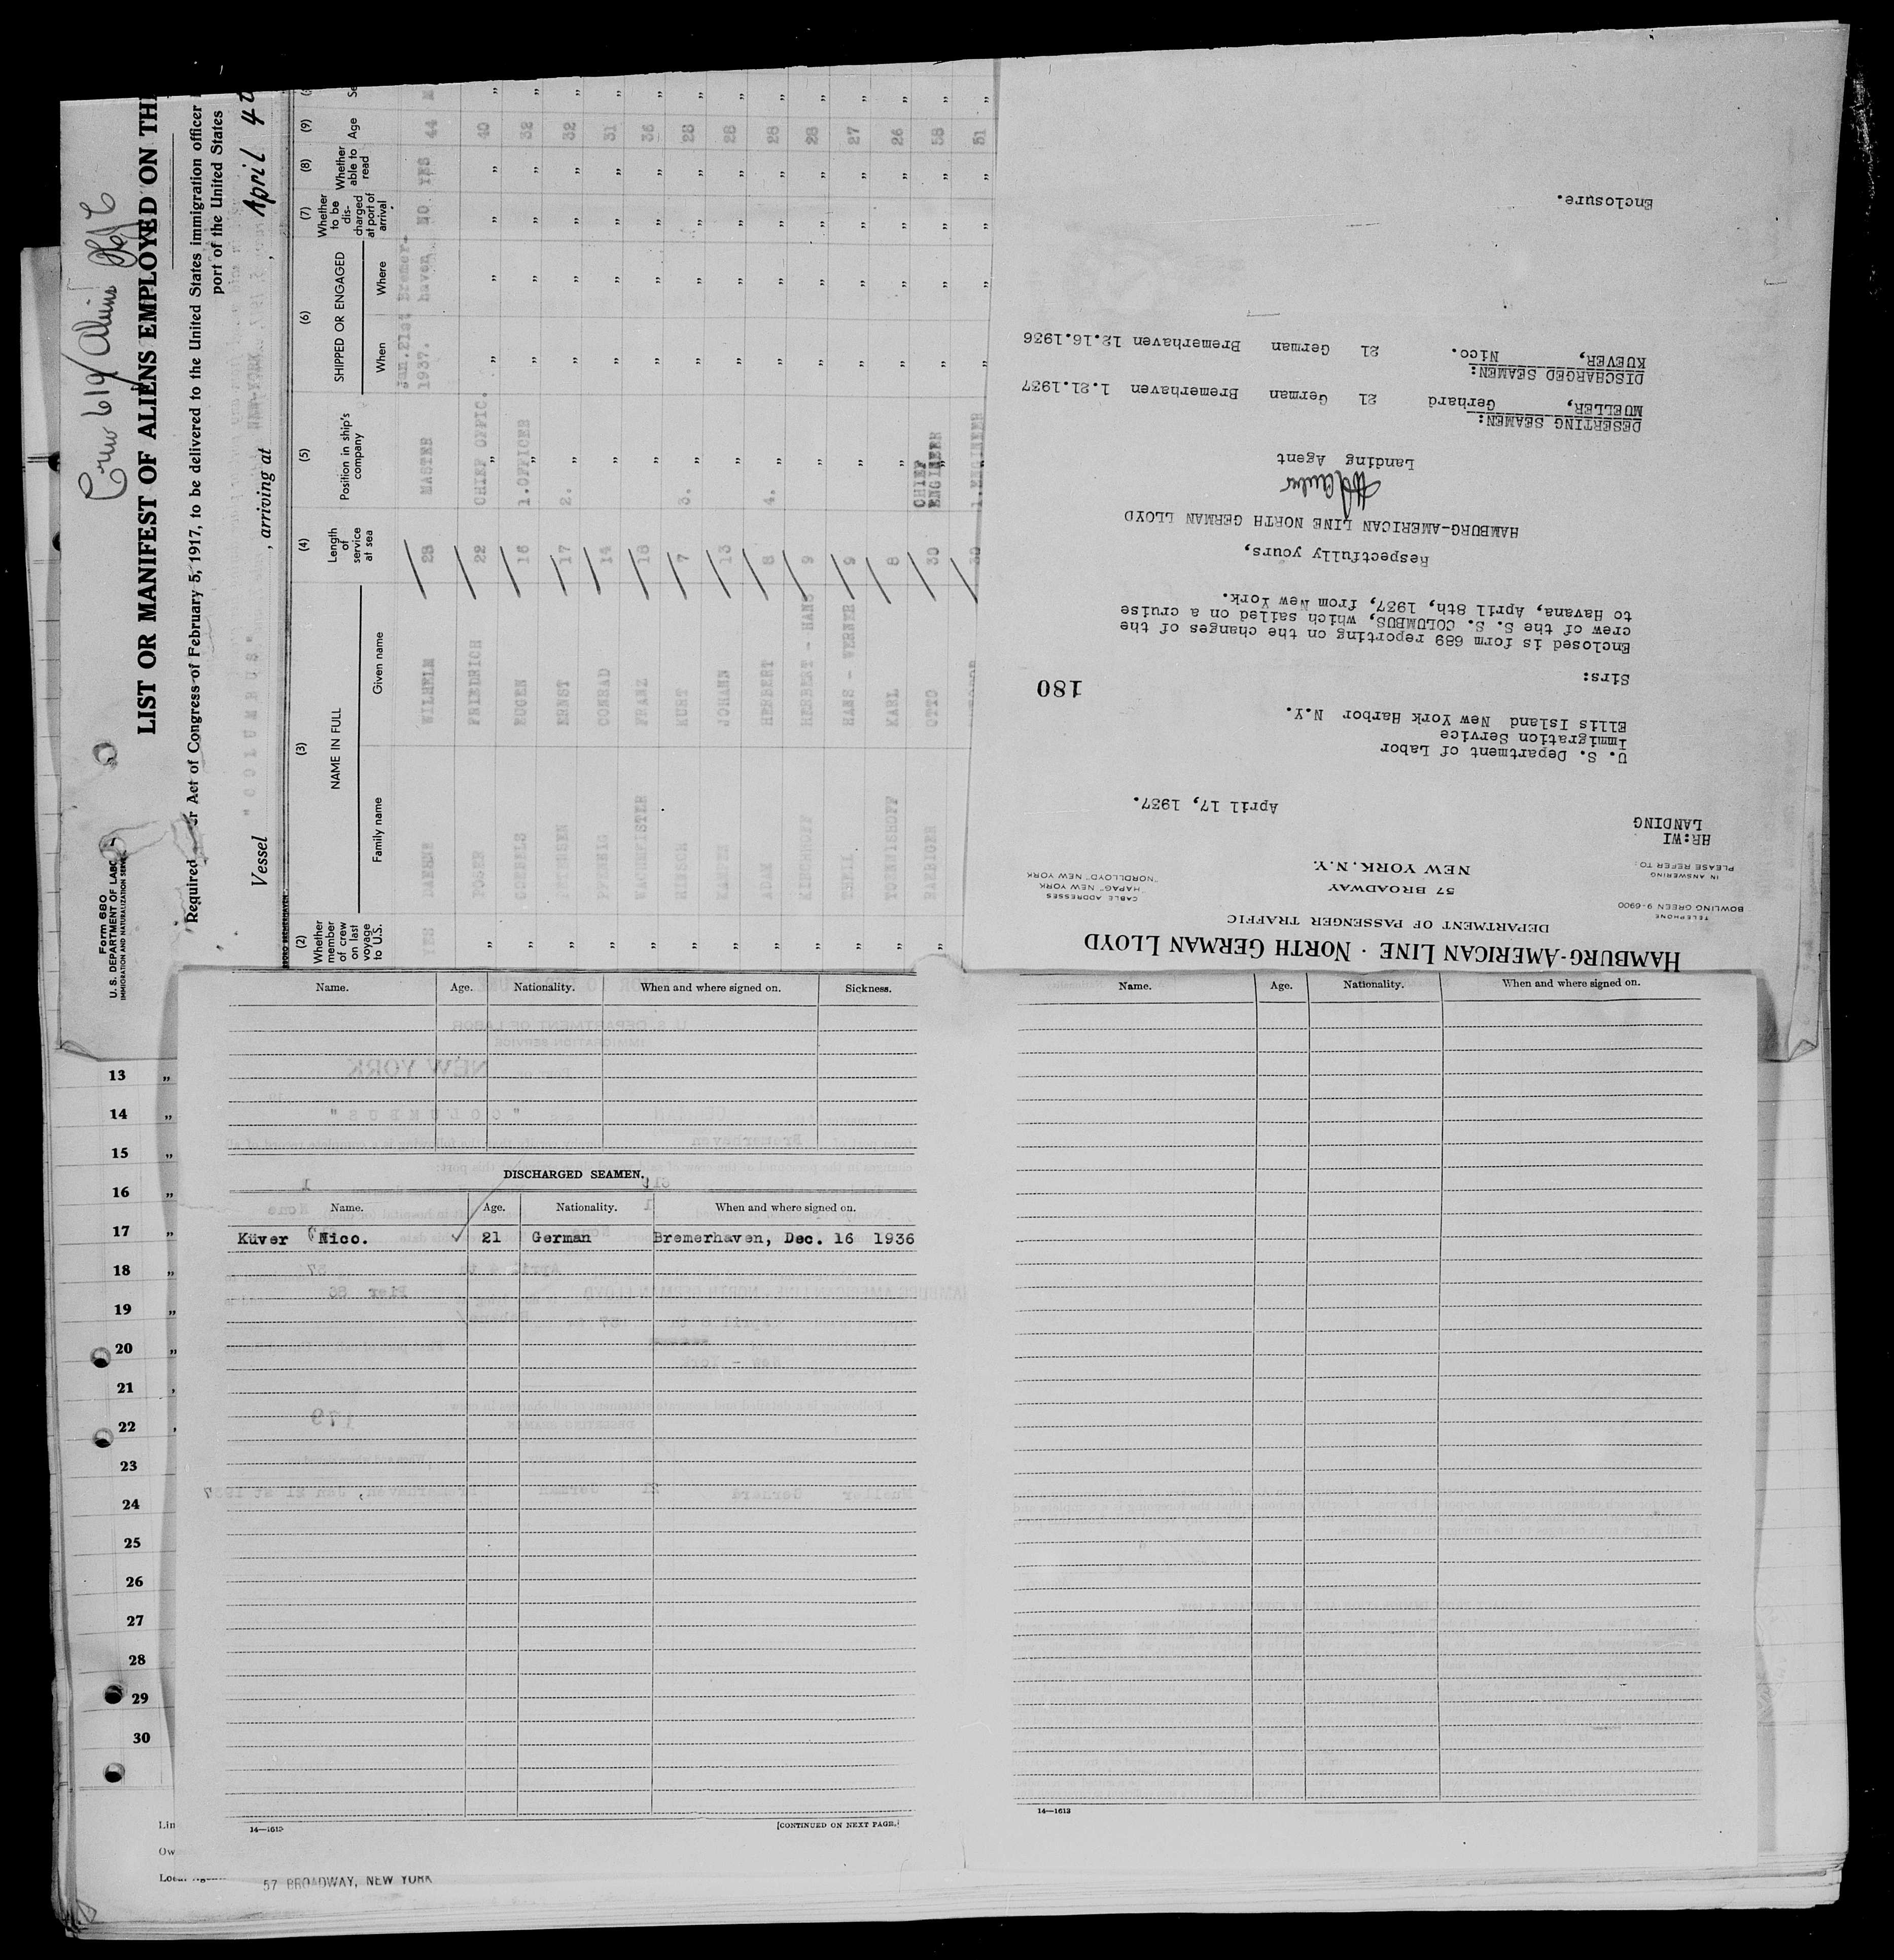 Crew 619
Form 680
U. S. DEPARTMENT OF LABOR
IMMIGRATION AND NATURALIZATION SERVICE
LIST OR MANIFEST OF ALIENS EMPLOYED ON TH
Act of Congress of February 5, 1917, to be delivered to the United States immigration officer
port of the United States
Vessel "COLUMBUS" , arriving at NEW-YORK , April 4
(2) (3) (4) (5) (6) (7) (8) (9)
Whether member of crew on last voyage to U.S.
NAME IN FULL
Family name Given name
Length of service at sea
Position in ship's company
SHIPPED OR ENGAGED
When Where
Whether to be discharged at port of arrival
Whether able to read
Age
YES WILHELM 28 MASTER Jan.21st 1937. Bremerhaven NO YES 44 M
" POSER FRIEDRICH 22 CHIEF OFFIC. " " " " 40 "
" GOEBELS EUGEN 16 1.OFFICER " " " " 32 "
" PETERSEN ERNST 17 2. " " " " " 32 "
" PFENNIG CONRAD 14 " " " " " 31 "
" WACHMEISTER FRANZ 18 " " " " " 36 "
" HIRSCH KURT 7 3. " " " " " 28 "
" JOHANN 13 " " " " " 28 "
" ADAM HERBERT 8 4. " " " " " 28 "
" KIRCHHOFF HERBERT - HANS 9 " " " " " 28 "
" THILL HANS - WERNER 9 " " " " " 27 "
" TOENNISHOFF KARL 8 " " " " " 26 "
" OTTO 30 CHIEF ENGINEER " " " " 58 "
30 1.ENGINEER " " " " 51 "
HAMBURG-AMERICAN LINE · NORTH GERMAN LLOYD
DEPARTMENT OF PASSENGER TRAFFIC
57 BROADWAY
NEW YORK, N.Y.
TELEPHONE
BOWLING GREEN 9-6900
IN ANSWERING
PLEASE REFER TO:
CABLE ADDRESSES
"HAPAG" NEW YORK
"NORDLLOYD" NEW YORK
HR:WI
LANDING
April 17, 1937.
U. S. Department of Labor
Immigration Service
Ellis Island New York Harbor N.Y.
180
Sirs:
Enclosed is form 689 reporting on the changes of the
crew of the S. S. COLUMBUS, which sailed on a cruise
to Havana, April 8th, 1937, from New York.
Respectfully yours,
HAMBURG-AMERICAN LINE NORTH GERMAN LLOYD
Landing Agent
DESERTING SEAMEN:
MUELLER, Gerhard 21 German Bremerhaven 1.21.1937
DISCHARGED SEAMEN:
KUEVER, Nico. 21 German Bremerhaven 12.16.1936
Enclosure.
Name. Age. Nationality. When and where signed on. Sickness.
DISCHARGED SEAMEN.
Name. Age. Nationality. When and where signed on.
Küver Nico. 21 German Bremerhaven, Dec. 16 1936
14—1613
[CONTINUED ON NEXT PAGE.]
Name. Age. Nationality. When and where signed on.
14—1613
13 "
14 "
15 "
16 "
17 "
18 "
19 "
20 "
21
22
23
24
25
26
27
28
29
30
Lin
Ow
57 BROADWAY, NEW YORK